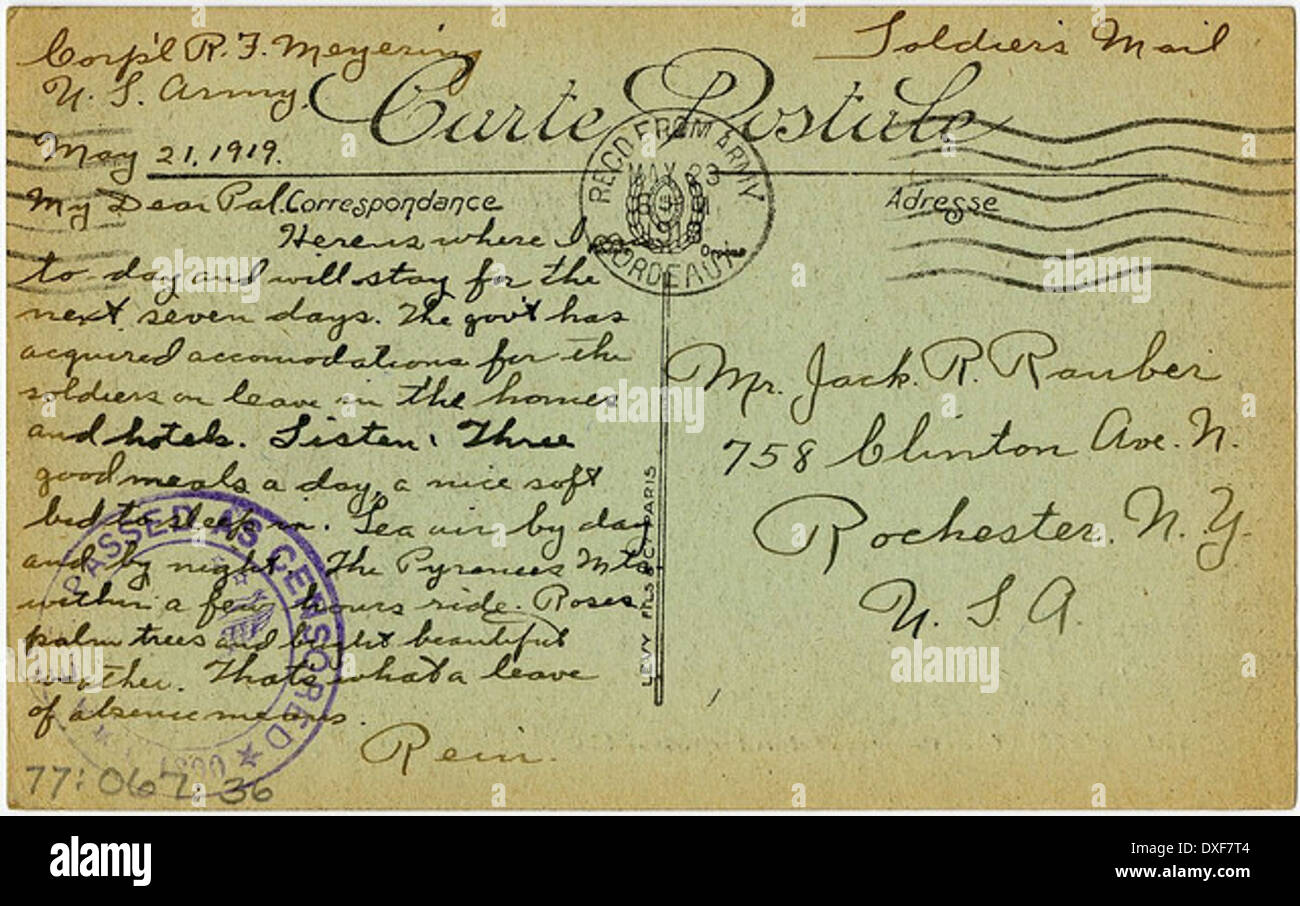 Corp'l R. F. Meyering
U. S. Army.
Soldier's Mail
Carte Postale
May 21, 1919.
REC'D FROM ARMY
MAY 23
BORDEAUX
My Dear Pal.
Correspondance
Adresse
Here is where I
to day and will stay for the
next seven days. The gov't has
acquired accomodations for the
soldiers on leave in the homes
and hotels. Listen, Three
good meals a day, a nice soft
bed to sleep in. Sea air by day
and by night. The Pyrenees Mts.
within a few hours ride. Roses
palm trees and bright beautiful
weather. That's what a leave
of absence means.
Rein.
Mr. Jack. R. Rauber
758 Clinton Ave. N.
Rochester, N. Y.
U. S. A.
LEVY FILS & Cie PARIS
PASSED AS CENSORED
77:067.36
alamy
Image ID: DXF7T4
www.alamy.com